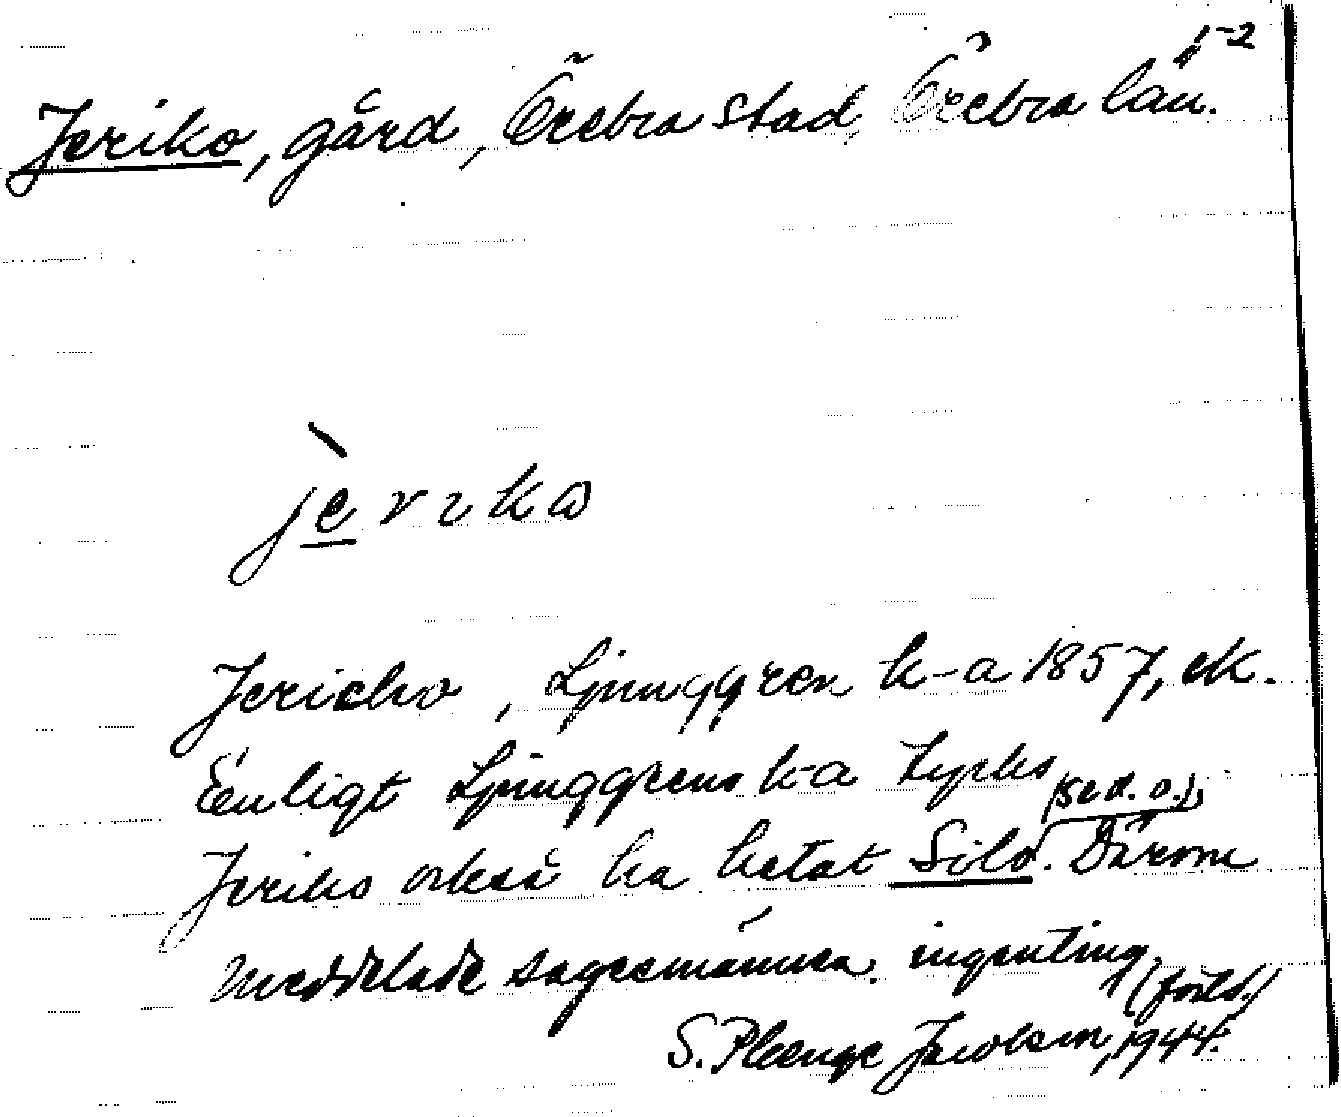 1-2
Jeriko, gård, Örebro stad, Örebro län.
jèrɩkω
Jericho, Ljunggren k-a 1857, ek.
Enligt Ljunggrens k-a tycks
Jeriko också ha hetat Silo (se d. o.). Därom
meddelade sagesmännen ingenting.
(forts.)
S. Pleenge Jacobson, 1944.